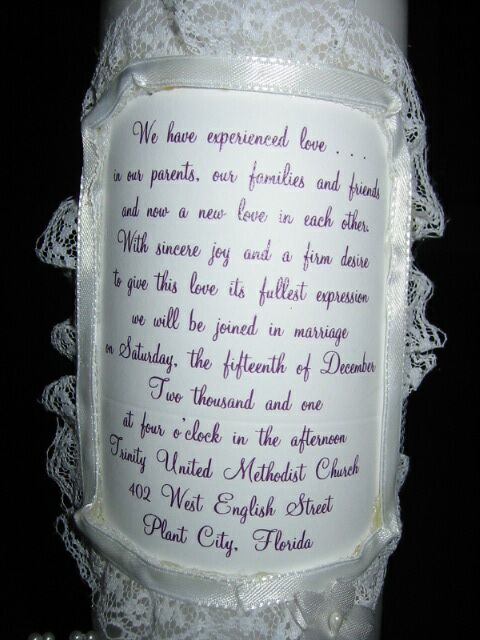 We have experienced love . . .
in our parents, our families and friends
and now a new love in each other.
With sincere joy and a firm desire
to give this love its fullest expression
we will be joined in marriage
on Saturday, the fifteenth of December
Two thousand and one
at four o'clock in the afternoon
Trinity United Methodist Church
402 West English Street
Plant City, Florida